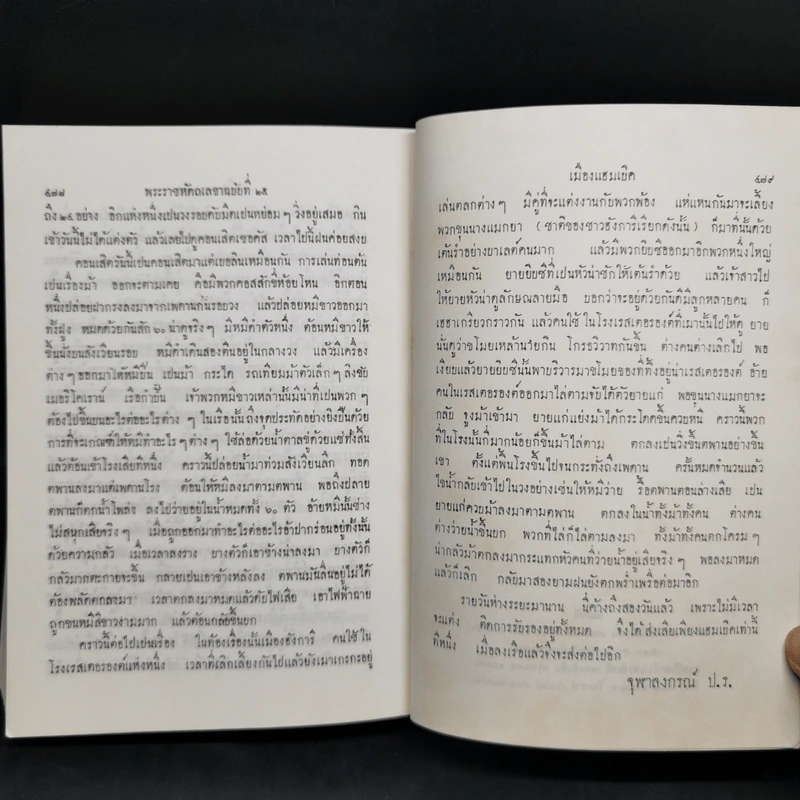 ๔๗๘ พระราชหัดถเลขาฉบับที่ ๒๕
ถึง ๒๔ อย่าง อีกแห่งหนึ่งเปนวงรอยคับมิดเปนหย่อม ๆ วิ่งอยู่เสมอ กิน
เข้าวันนี้ไม่ได้แต่งตัว แล้วเลยไปดูคอนเสิตเซอคัส เวลาไปนี้ฝนค่อยสงบ
คอนเสิตวันนี้เปนคอนเสิตมาแต่เยอลินเหมือนกัน การเล่นท่อนต้น
เปนเรื่องม้า ออกจะตามเคย คือมีพวกคอสสักขี่ห้อยโหน อีกตอน
หนึ่งปล่อยฝากรงลงมาจากเพดานกันรอบวง แล้วปล่อยหมีขาวออกมา
ทั้งฝูง หมดด้วยกันสัก ๖๐ น่าดูจริง ๆ มีหมีดำตัวหนึ่ง ต้อนหมีขาวให้
ขึ้นนั่งบนสังเวียนรอบ หมีดำเดินสองตีนอยู่ในกลางวง แล้วมีเครื่อง
ต่างๆ ออกมาให้หมีขึ้น เปนม้า กระได รถเทียมม้าตัวเล็ก ๆ ลิงขับ
เมอริโคเราน์ เรือกำปั่น เจ้าพวกหมีขาวเหล่านั้นมีน่าที่เปนพวก ๆ
ต้องไปขึ้นบนอะไรต่ออะไรต่าง ๆ ในเรือนั้นถึงจุดประทัดอย่างยิงปืนด้วย
การที่จะเกณฑ์ให้หมีทำอะไร ๆ ต่าง ๆ ใช้ล่อด้วยน้ำตาลขู่ด้วยแซ่ทั้งสิ้น
แล้วต้อนเข้าโรงเสียทีหนึ่ง คราวนี้ปล่อยน้ำมาท่วมสังเวียนลึก ทอด
ตพานลงมาแต่เพดานโรง ต้อนให้หมีลงมาตามตพาน พอถึงปลาย
ตพานก็ตกน้ำโพล่ง ลงไปว่ายอยู่ในน้ำหมดทั้ง ๖๐ ตัว อ้ายหมีนั้นช่าง
ไม่สนุกเสียจริง ๆ เมื่อถูกออกมาทำอะไรต่ออะไรอ้าปากร่อนอยู่ทั้งนั้น
ด้วยความกลัว เมื่อเวลาลงราง บางตัวก็เอาข้างน่าลงมา บางตัวก็
กลัวมากตะกายจะขึ้น กลายเปนเอาข้างหลังลง ตพานมันลื่นอยู่ไม่ได้
ต้องพลัดตกลงมา เวลาตกลงมาหมดแล้วดับไฟเสีย เอาไฟฟ้าฉาย
ถูกขนหมีสีขาวงามมาก แล้วต้อนกลับขึ้นบก
คราวนี้ต่อไปเปนเรื่อง ในท้องเรื่องนั้นเมืองฮังการี คนใช้ใน
โรงเรสเตอรองต์แห่งหนึ่ง เวลาที่เลิกเลี้ยงกันไปแล้วยังเมาเกรกระอยู่
เมืองแฮมเบิค ๔๗๙
เล่นตลกต่างๆ มีคู่ที่จะแต่งงานกับพวกพ้อง แห่แหนกันมาจะเลี้ยง
พวกขุนนางแมกยา ( ชาติของชาวฮังการีเรียกดังนั้น ) ก็มาที่นั้นด้วย
เต้นรำอย่างบาเลต์คนมาก แล้วมีพวกยิบซีออกมาอีกพวกหนึ่งใหญ่
เหมือนกัน ยายยิบซีที่เปนหัวน่าซักให้เต้นรำด้วย แล้วเจ้าสาวไป
ให้ยายหัวน่าดูลักษณลายมือ บอกว่าจะอยู่ด้วยกันดีมีลูกหลายคน ก็
เฮฮาเกรียวกราวกัน แล้วคนใช้ในโรงเรสเตอรองต์ที่เมานั้นไปให้ดู ยาย
นั่นดูว่าขโมยเหล้านายกิน โกรธวิวาทกันขึ้น ต่างคนต่างเลิกไป พอ
เงียบแล้วยายยิบซีนั้นพาบริวารมาขโมยของที่ทิ้งอยู่น่าเรสเตอรองต์ อ้าย
คนในเรสเตอรองต์ออกมาไล่ตามจับได้ตัวยายแก่ พอขุนนางแมกยาจะ
กลับ จูงม้าเข้ามา ยายแก่แย่งม้าได้กระโดดขึ้นควบหนี คราวนี้พวก
ที่ในโรงนั้นก็มากน้อยก็ขึ้นม้าไล่ตาม ตกลงเปนวิ่งขึ้นตพานอย่างขึ้น
เขา ตั้งแต่พื้นโรงขึ้นไปจนกระทั่งถึงเพดาน ครั้นหมดจำนวนแล้ว
ไขน้ำกลับเข้าไปในวงอย่างเช่นให้หมีว่าย รื้อตพานตอนล่างเสีย เปน
ยายแก่ควบม้าลงมาตามตพาน ตกลงในน้ำทั้งม้าทั้งคน ต่างคน
ต่างว่ายน้ำขึ้นบก พวกที่ไล่ก็ไล่ตามลงมา ทั้งม้าทั้งคนตกโครม ๆ
น่ากลัวม้าตกลงมากระแทกหัวคนที่ว่ายน้ำอยู่เสียจริง ๆ พอลงมาหมด
แล้วก็เลิก กลับมาสองยามฝนยังตกพรำเพรื่อต่อมาอีก
รายวันห่างระยะมานาน นี่ค้างถึงสองวันแล้ว เพราะไม่มีเวลา
จะแต่ง ติดการรับรองอยู่ทั้งหมด จึงได้ส่งเสียเพียงแฮมเบิคเท่านี้
ทีหนึ่ง เมื่อลงเรือแล้วจึงจะส่งต่อไปอีก
จุฬาลงกรณ์ ป.ร.